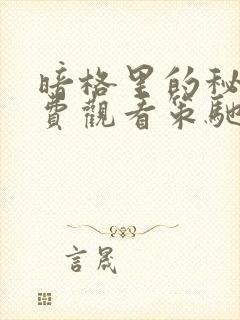 暗格里的秘
費觀看策馳
言晟